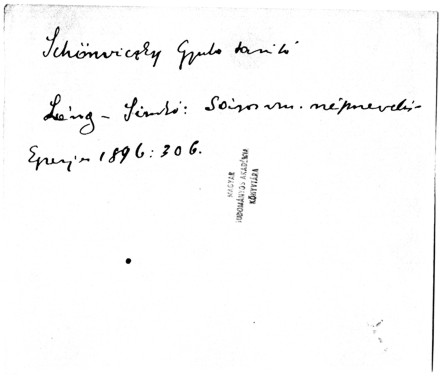 Schönviczky Gyula tanító
Láng - Simkó: Sáros vm. népnevelés-
Eperjes 1896: 306.
MAGYAR
TUDOMÁNYOS AKADÉMIA
KÖNYVTÁRA